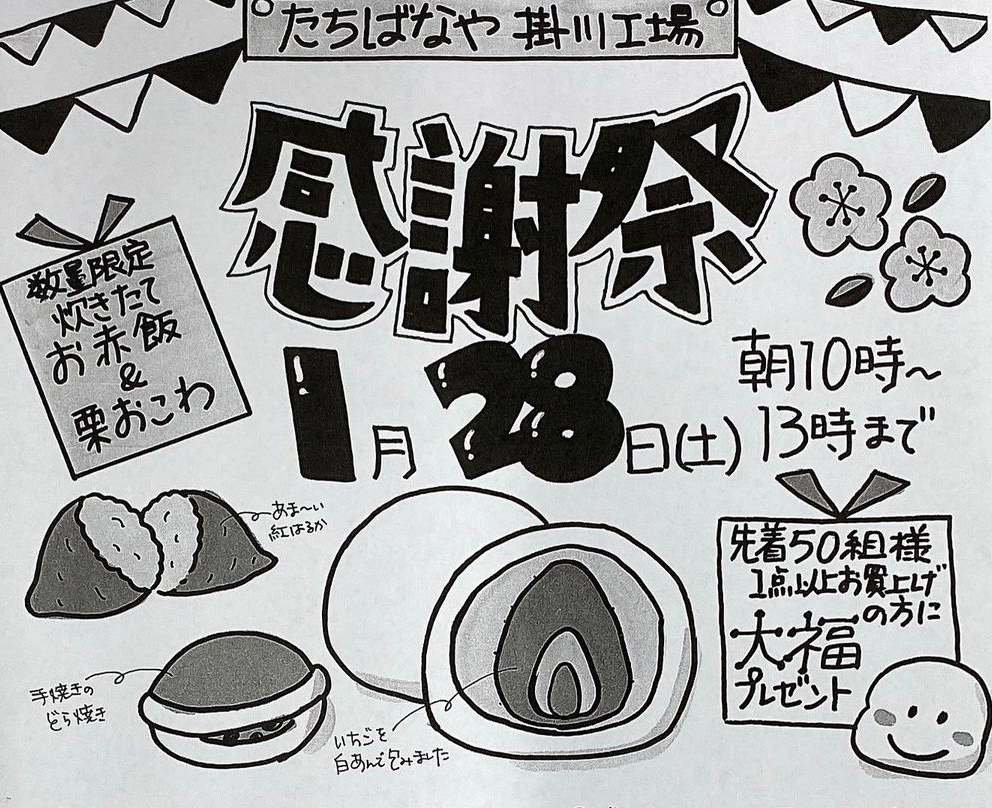 たちばなや 掛川工場
感謝祭
数量限定
炊きたて
お赤飯
&
栗おこわ
1月28日(土)
朝10時〜
13時まで
あま〜い
紅はるか
先着50組様
1点以上お買上げ
の方に
大福
プレゼント
手焼きの
どら焼き
いちごを
白あんで包みました